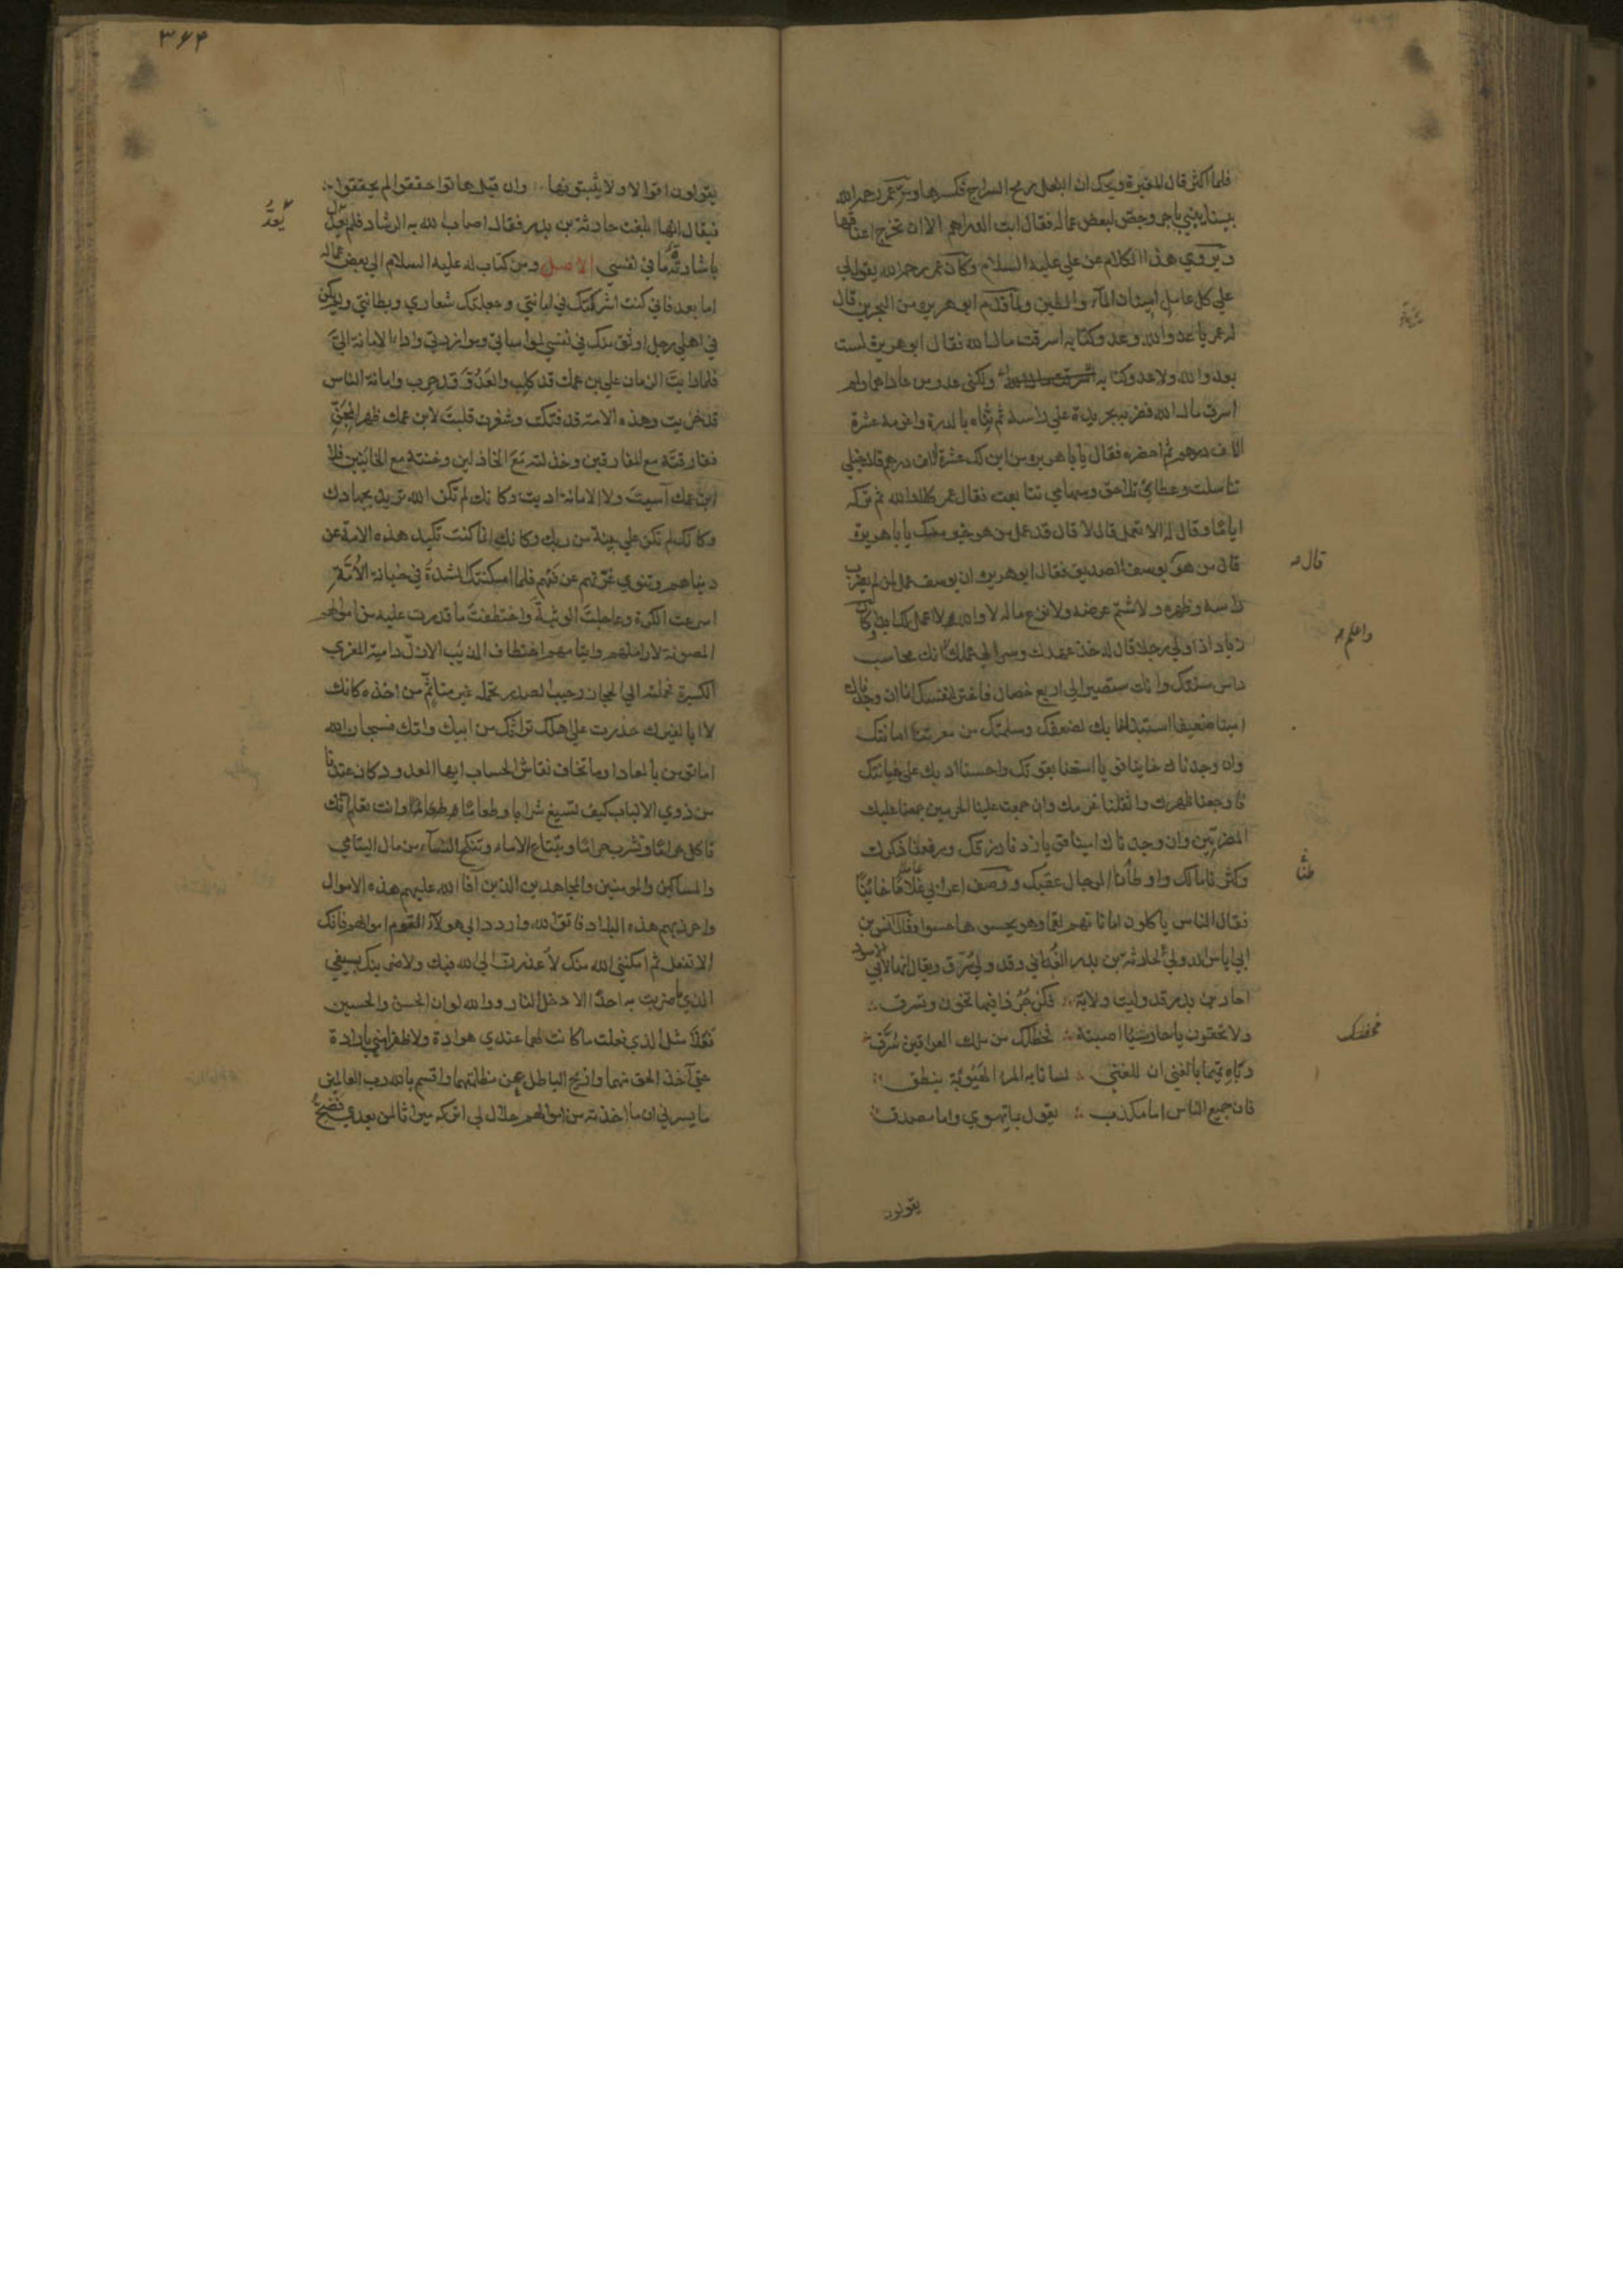 فلما اكثر قال المغيرة ويحك ان البغل رمح السراج فكسرها ومر عمر رحمه الله
ببناء يبني باجر وجص لبعض عماله فقال ابت الدراهم الا ان تخرج اعناقها
ويروي هذا الكلام عن علي عليه السلام وكان عمر رحمه الله يقول لي
علي كل عامل امينان الماء والطين ولما قدم ابو هريره من البحرين قال
له عمر يا عدو الله وعدو كتابه اسرقت مال الله فقال ابو هريرة لست
بعدو الله ولا عدو كتابه ولكني عدو من عاداهما ولم
اسرق مال الله فضربه بجريدة علي راسه ثم ثناه بالدرة واغرمه عشرة
الاف درهم ثم احضره فقال يا با هريره من اين لك عشرة الاف درهم قال خيلي
تناسلت وعطائي تلاحق وسهامي تتابعت فقال عمر كلا والله ثم تركه
اياما وقال له الا تعمل قال لا قال قد عمل من هو خير منك يا با هريرة
قال من هو يوسف الصديق فقال ابو هريرة ان يوسف عمل لمن لم يضرب
قال
راسه وظهره ولا شتم عرضه ولا نزع ماله لا والله لا اعمل لك ابدا وكان
زياد اذا ولي رجلا قال له خذ عهدك وسر الي عملك انك محاسب
واعلم
راس سنتك وانك ستصير الي اربع خصال فاختر لنفسك انا ان وجدناك
امينا ضعيفا استبدلنا بك لضعفك وسلمتك من معرتنا امانتك
وان وجدناك خاينا قويا استهنا بقوتك واحسنا ادبك علي خيانتك
فاوجعنا ظهرك واثقلنا غرمك وان جمعت علينا الجرمين جمعنا عليك
المضرتين وان وجدناك امينا قويا زدنا رزقك ورفعنا ذكرك
وكثرنا مالك واوطانا الرجال عقبك ووصف اعرابي عاملا خائنا
فقال الناس ياكلون اماناتهم لقما وهو يحسوها حسوا وقال انس بن
ابي اياس الدولي لحارثة بن بدر الغداني وقد ولي سرق ويقال انها لابي الاسود
احار بن بدر قد وليت ولاية ∴ فكن جرذا فيها تخون وتسرق ∴
ولا تحقرن يا حار شيئا اصبته ∴ فحظك من ملك العراقين سرق
وباه تميما بالغني ان للغني ∴ لسانا به المرء الهيوبة ينطق
فان جميع الناس اما مكذب ∴ يقول بما تهوي واما مصدق
يقولون
٣۶۴
يقولون اقوالا ولا يثبتونها ∴ وان قيل هاتوا حققوا لم يحققوا
فيقال انها بلغت حارثة بن بدر فقال اصاب الله به الرشاد فلم يعد
يعد
باشارته ما في نفسي الاصل ومن كتاب له عليه السلام الي بعض عماله
اما بعد فاني كنت اشركتك في امانتي وجعلتك شعاري وبطانتي ولم يكن
في اهلي رجل اوثق منك في نفسي لمواساتي وموازرتي واداء الامانة الي
فلما رايت الزمان علي بن عمك قد كلب والعدو قد حرب وامانة الناس
قد خزيت وهذه الامة قد فتكت وشغرت قلبت لابن عمك ظهر المجن
ففارقته مع المفارقين وخذلته مع الخاذلين وخنته مع الخائنين فلا
ابن عمك آسيت ولا الامانة اديت وكانك لم تكن الله تريد بجهادك
وكانك لم تكن علي بينة من ربك وكانك انما كنت تكيد هذه الامة عن
دنياهم وتنوي غرتهم عن فيئهم فلما امكنتك الشدة في خيانة الامة
اسرعت الكرة وعاجلت الوثبة واختطفت ما قدرت عليه من اموالهم
المصونة لاراملهم وايتامهم اختطاف الذئب الازل دامية المعزي
الكسيرة فحملته الي الحجاز رحيب الصدر بحمله غير متاثم من اخذه كانك
لا ابا لغيرك حدرت علي اهلك تراثك من ابيك وامك فسبحان الله
اما تومن بالمعاد اوما تخاف نقاش الحساب ايها المعدود كان عندنا
من ذوي الالباب كيف تسيغ شرابا وطعاما وانت تعلم انك
تاكل حراما وتشرب حراما وتبتاع الاماء وتنكح النساء من مال اليتامي
والمساكين والمومنين والمجاهدين الذين آفا الله عليهم هذه الاموال
واحرز بهم هذه البلاد فاتق الله واردد الي هولاء القوم اموالهم فانك
ان لا تفعل ثم امكنني الله منك لاعذرن الي الله فيك ولاضربنك بسيفي
الذي ما ضربت به احدا الا دخل النار ووالله لو ان الحسن والحسين
فعلا مثل الذي فعلت ما كانت لهما عندي هوادة ولا ظفرا مني بارادة
حتي آخذ الحق منهما وازيح الباطل عن مظلمتهما واقسم بالله رب العالمين
ما يسرني ان ما اخذته من اموالهم حلال لي اتركه ميراثا لمن بعدي فضح